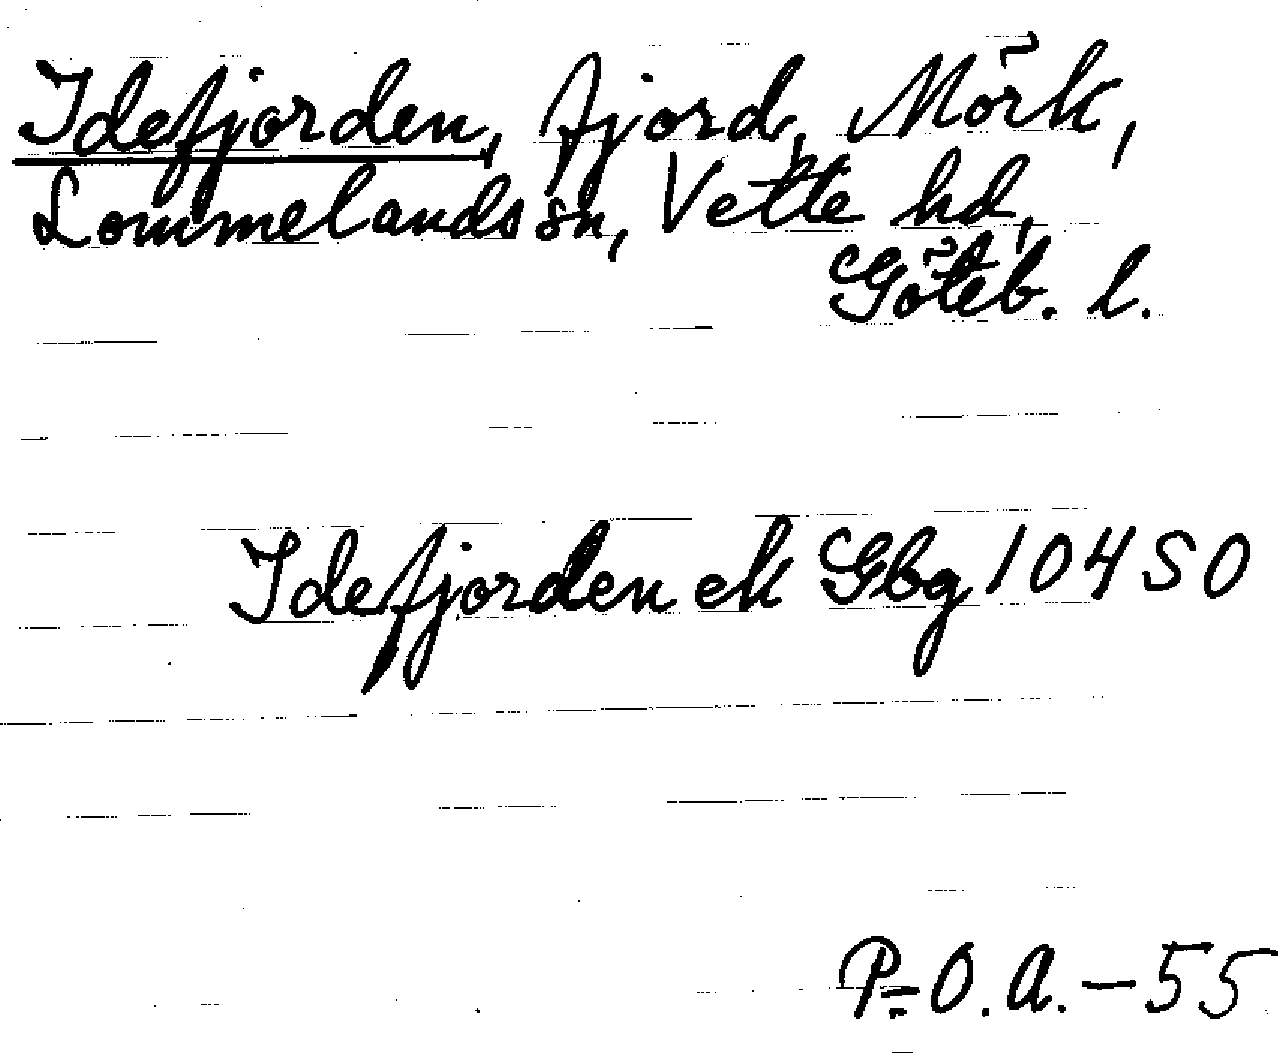 Idefjorden, fjord, Mörk,
Lommelands sn, Vette hd,
Göteb. l.
Idefjorden ek Gbg 104 SO
P.-O. A. – 55